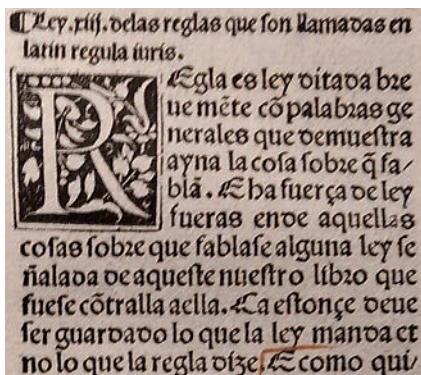 ¶Ley.xiij.delas reglas que son llamadas en
latin regula iuris.
REgla es ley ditada bre
ue mēte cō palabras ge
nerales que demuestra
ayna la cosa sobre q̄ fa/
blā. E ha fuerça de ley
fueras ende aquellas
cosas sobre que fablase alguna ley se
ñalada de aqueste nuestro libro que
fuese cōtralla aella. Ca estonçe deue
ser guardado lo que la ley manda et
no lo que la regla dize. E como qui/